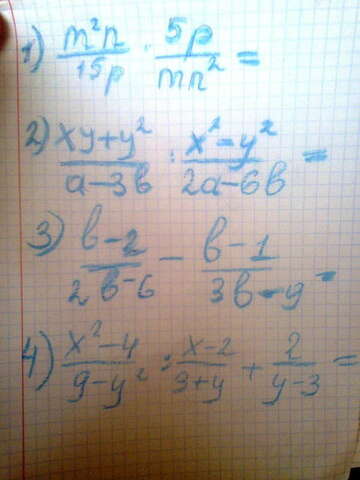 1) m²n/15p · 5p/mn² =
2) xy+y²/a-3в : x²-y²/2a-6в =
3) в-2/2в-6 - в-1/3в-9 =
4) x²-4/9-y² : x-2/3+y + 2/y-3 =